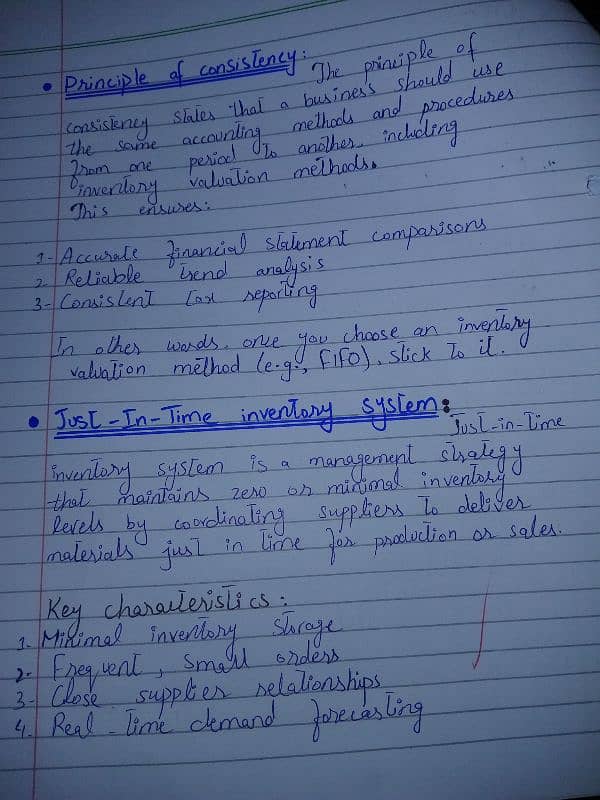 • Principle of consistency: The principle of
consistency states that a business should use
the same accounting methods and procedures
from one period to another, including
inventory valuation methods.
This ensures:
1- Accurate financial statement comparisons
2. Reliable trend analysis
3- Consistent tax reporting
In other words, once you choose an inventory
valuation method (e.g., FIFO), stick to it.
• Just-In-Time inventory system: Just-in-time
inventory system is a management strategy
that maintains zero or minimal inventory
levels by coordinating suppliers to deliver
materials just in time for production or sales.
Key characteristics:
1. Minimal inventory storage
2- Frequent, small orders
3- Close supplier relationships
4. Real-time demand forecasting